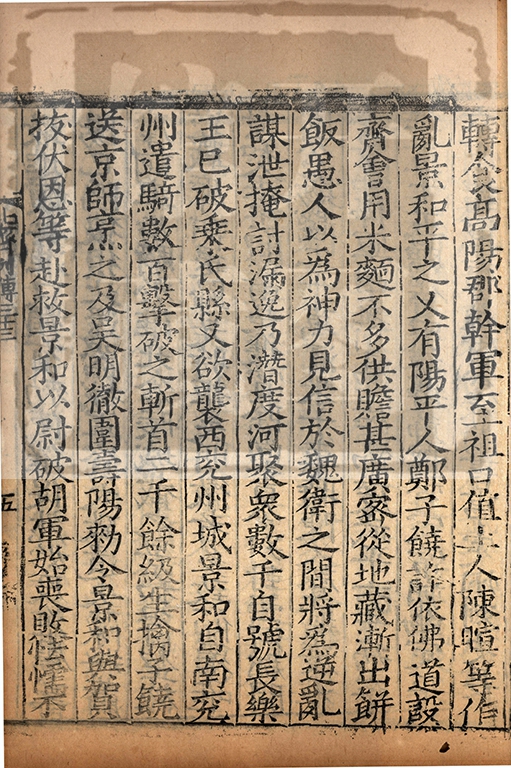 轉食高陽郡幹軍至祖口值土人陳暄等作
亂景和平之又有陽平人鄭子饒詐依佛道設
齋會用米麵不多供贍甚廣密從地藏漸出餅
飯愚人以為神力見信於魏衛之間將為逆亂
謀泄掩討漏逸乃潛度河聚衆數千自號長樂
王已破乘氏縣又欲襲西兖州城景和自南兖
州遣騎數百擊破之斬首二千餘級生擒子饒
送京師烹之及吳明徹圍壽陽勑令景和與賀
拔伏恩等赴救景和以尉破胡軍始喪敗怯懦不
五